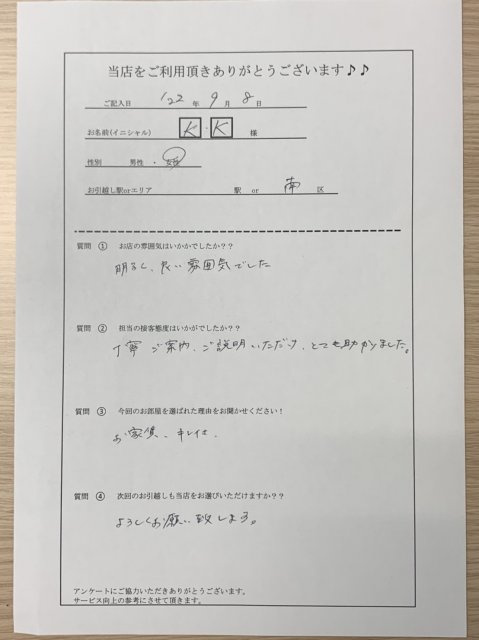 当店をご利用頂きありがとうございます♪♪
ご記入日 '22 年 9 月 8 日
お名前(イニシャル) K ・ K 様
性別 男性 ・ 女性
お引越し駅orエリア 駅 or 南 区
質問 ① お店の雰囲気はいかかでしたか??
明るく、良い雰囲気でした
質問 ② 担当の接客態度はいかがでしたか??
丁寧ご案内、ご説明いただけ、とても助かりました。
質問 ③ 今回のお部屋を選ばれた理由をお聞かせください!
お家賃、キレイさ、
質問 ④ 次回のお引越しも当店をお選びいただけますか??
よろしくお願い致します。
アンケートにご協力いただきありがとうございます。
サービス向上の参考にさせて頂きます。